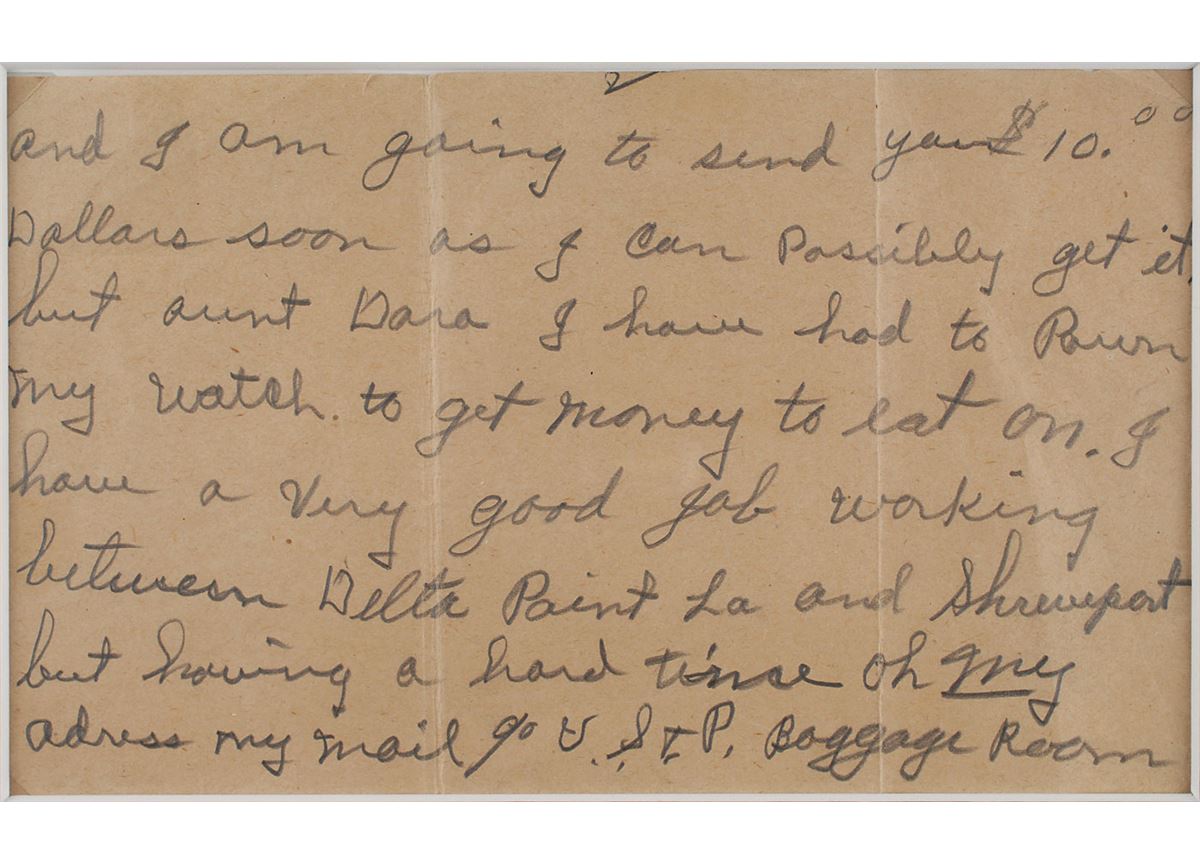 2
and I am going to send you $10.00
Dollars soon as I can Possibly get it,
but aunt Dora I have had to Pawn
my watch. to get money to eat on. I
have a very good job working
between Delta Point La and Shreveport
but having a hard time oh my
adress my mail c/o V. S. & P. Baggage Room